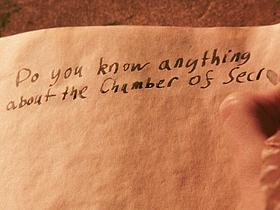 Do you know anything
about the Chamber of Secr